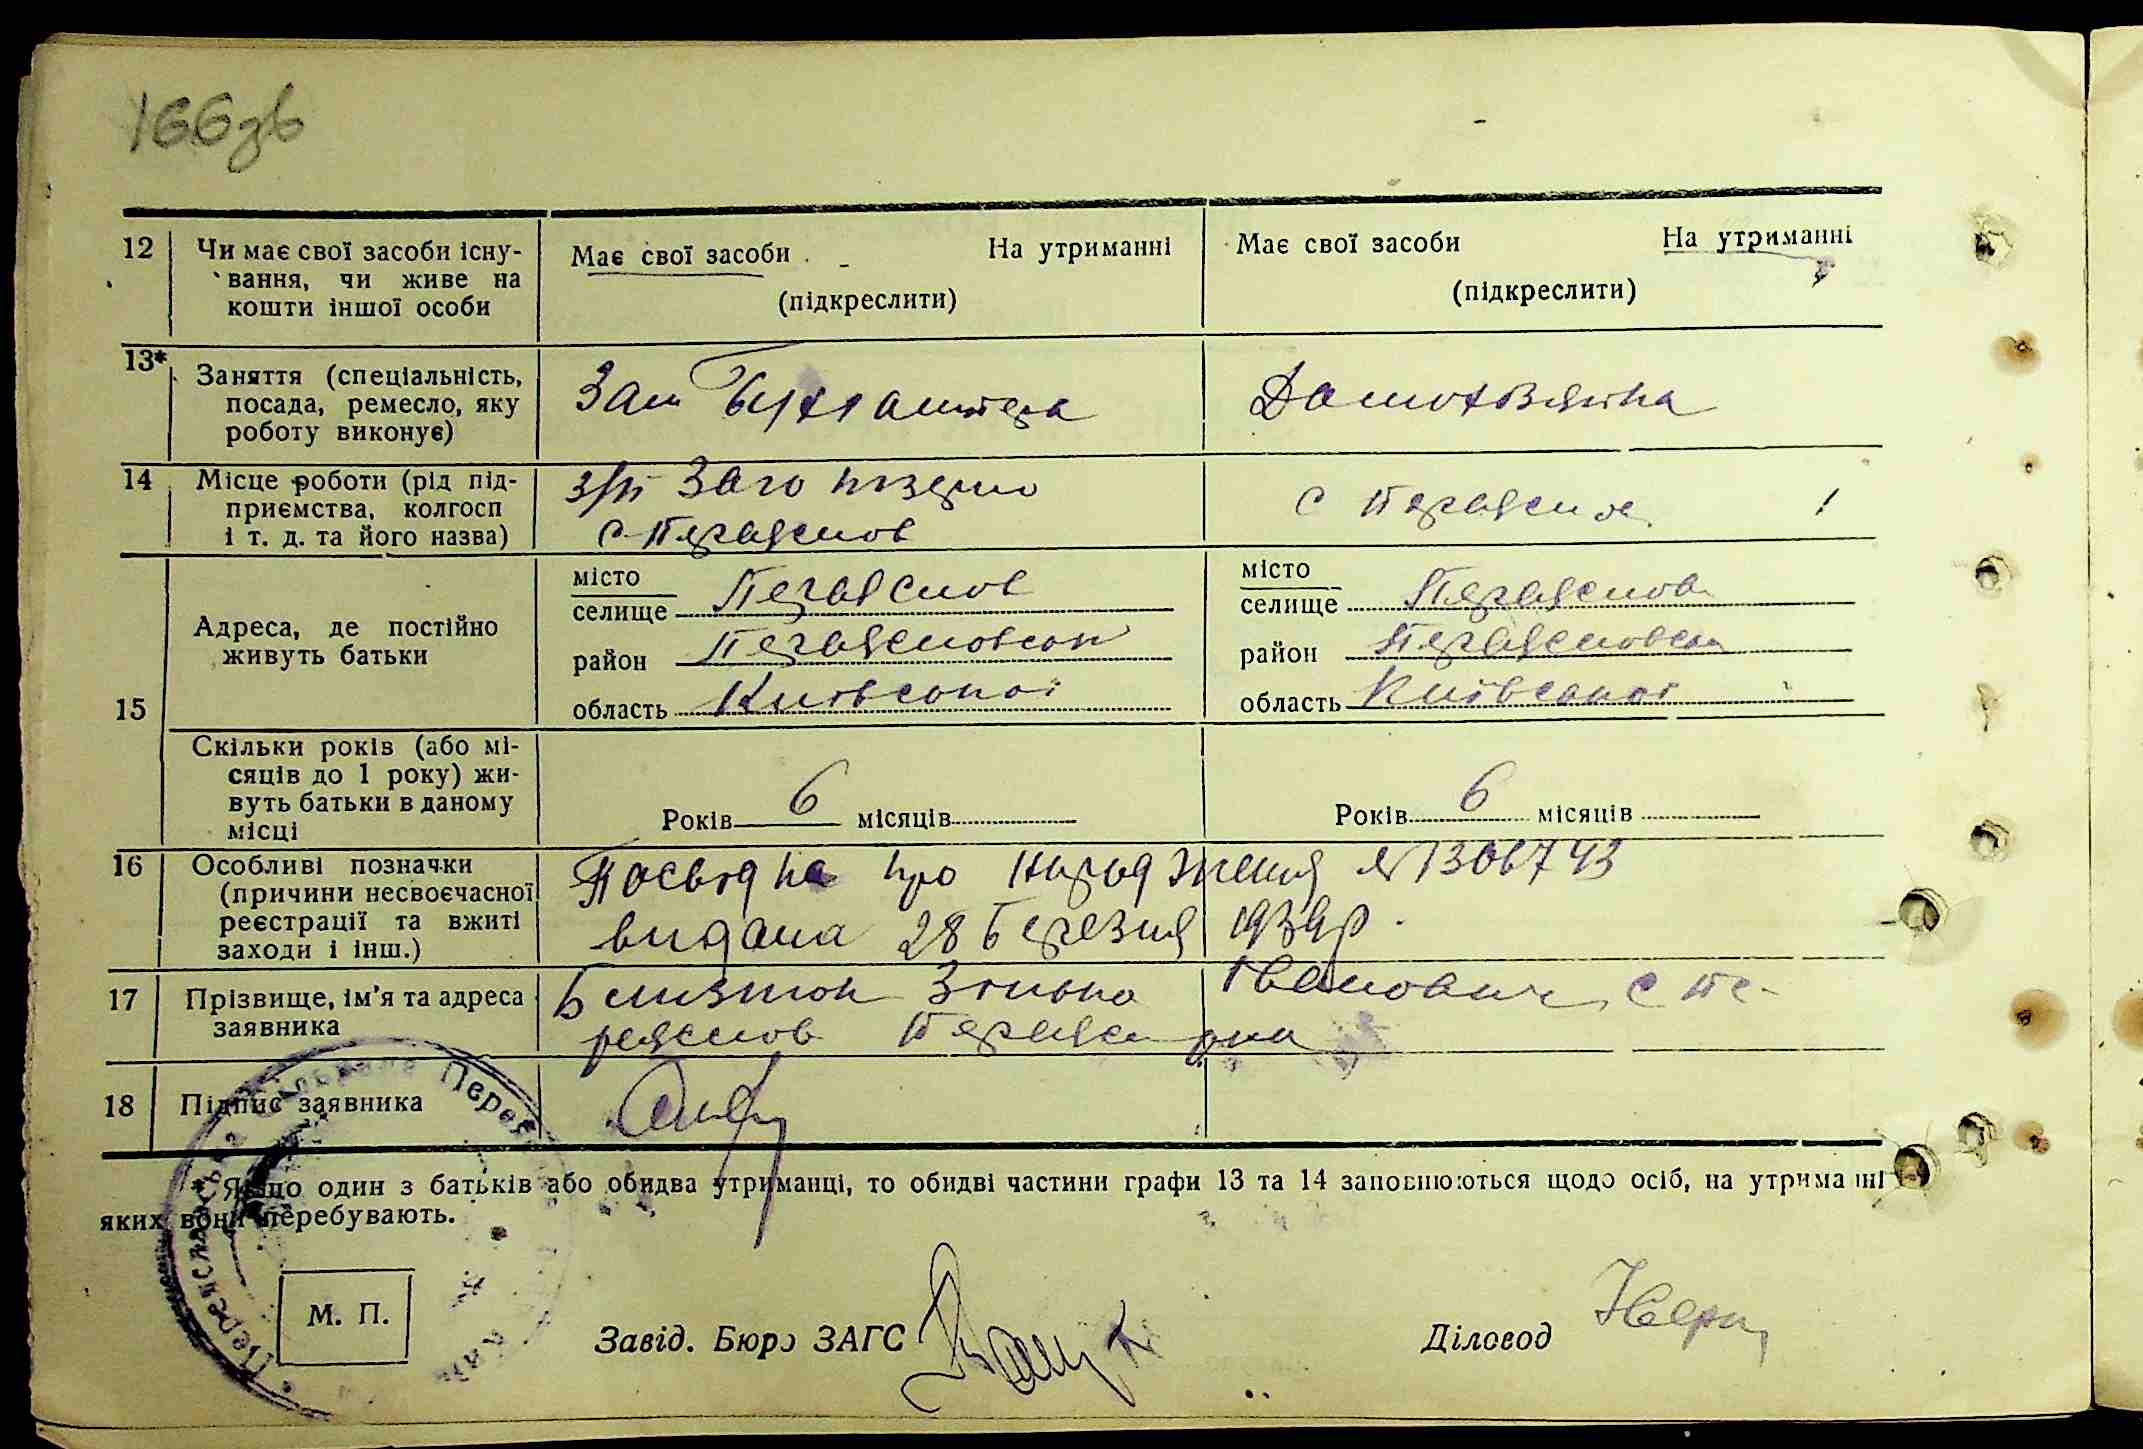 166зв
12 Чи має свої засоби існу-
вання, чи живе на
кошти іншої особи
Має свої засоби На утриманні
(підкреслити)
Має свої засоби На утриманні
(підкреслити)
13* Заняття (спеціальність,
посада, ремесло, яку
роботу виконує)
Зам Бухгалтера
Домохазяйка
14 Місце роботи (рід під-
приємства, колгосп
і т. д. та його назва)
з/п Заго
с Переяслов
с Переяслов
15 Адреса, де постійно
живуть батьки
місто
селище Переяслов
район Переясловськ
область Київської
місто
селище Переяслов
район Переясловськ
область Київської
Скільки років (або мі-
сяців до 1 року) жи-
вуть батьки в даному
місці
Років 6 місяців
Років 6 місяців
16 Особливі позначки
(причини несвоєчасної
реєстрації та вжиті
заходи і інш.)
про народження №
видана 28 Березня 1939р.
17 Прізвище, ім'я та адреса
заявника
Іванович с Пе-
реяслов
18 Підпис заявника
* Якщо один з батьків або обидва утриманці, то обидві частини графи 13 та 14 заповнюються щодо осіб, на утриманні
яких вони перебувають.
М. П.
Завід. Бюро ЗАГС
Діловод